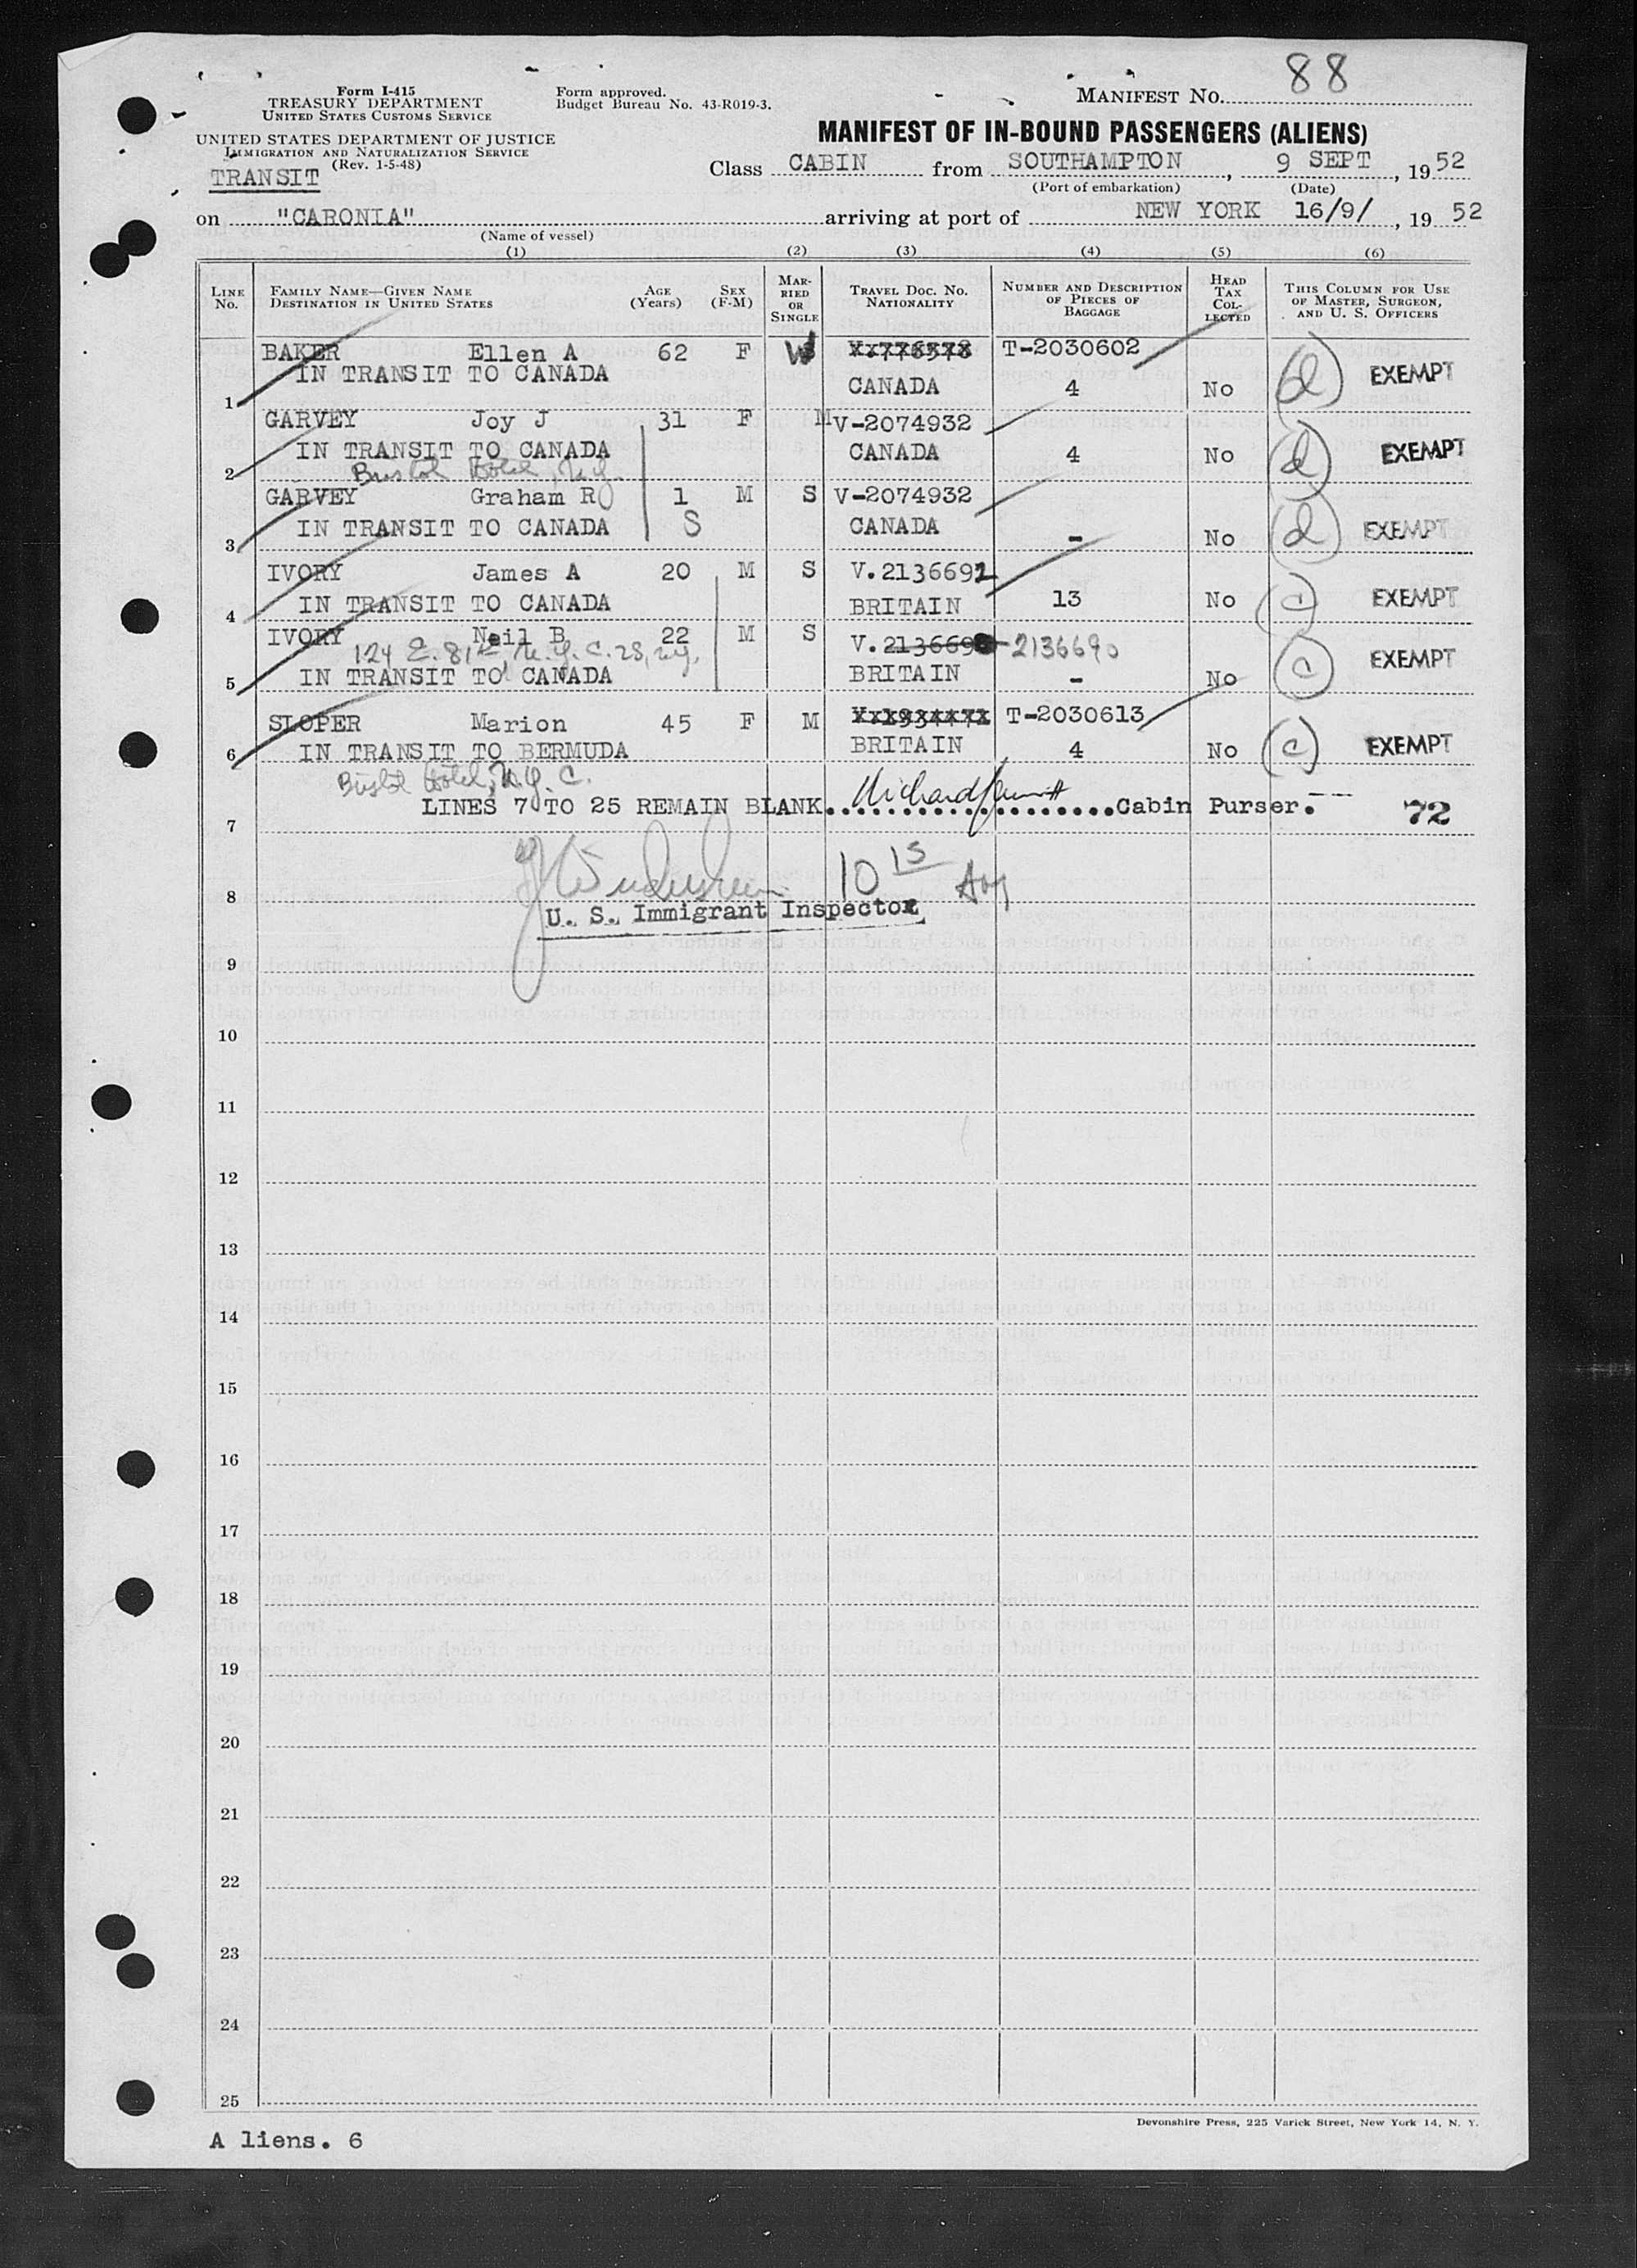 88
Form I-415
TREASURY DEPARTMENT
UNITED STATES CUSTOMS SERVICE
Form approved.
Budget Bureau No. 43-R019-3.
MANIFEST NO.
UNITED STATES DEPARTMENT OF JUSTICE
IMMIGRATION AND NATURALIZATION SERVICE
(Rev. 1-5-48)
TRANSIT
MANIFEST OF IN-BOUND PASSENGERS (ALIENS)
Class CABIN from SOUTHAMPTON, 9 SEPT, 1952
(Port of embarkation) (Date)
on "CARONIA" arriving at port of NEW YORK 16/9/, 1952
(Name of vessel)
(1) (2) (3) (4) (5) (6)
LINE NO. FAMILY NAME—GIVEN NAME DESTINATION IN UNITED STATES AGE (Years) SEX (F-M) MARRIED OR SINGLE TRAVEL DOC. NO. NATIONALITY NUMBER AND DESCRIPTION OF PIECES OF BAGGAGE HEAD TAX COLLECTED THIS COLUMN FOR USE OF MASTER, SURGEON, AND U. S. OFFICERS
BAKER Ellen A 62 F W T-2030602
1 IN TRANSIT TO CANADA CANADA 4 No d EXEMPT
GARVEY Joy J 31 F M V-2074932
2 IN TRANSIT TO CANADA CANADA 4 No d EXEMPT
Bristol Hotel, N.Y.
GARVEY Graham R 1 M S V-2074932
3 IN TRANSIT TO CANADA S CANADA - No d EXEMPT
IVORY James A 20 M S V.2136691
4 IN TRANSIT TO CANADA BRITAIN 13 No c EXEMPT
IVORY Neil B 22 M S V.213669 2136690
124 E. 81st, N.Y.C. 28, N.Y.
5 IN TRANSIT TO CANADA BRITAIN - No c EXEMPT
SLOPER Marion 45 F M T-2030613
6 IN TRANSIT TO BERMUDA BRITAIN 4 No c EXEMPT
Bristol Hotel, N.Y.C.
7 LINES 7 TO 25 REMAIN BLANK Cabin Purser. 72
10 15
8 U. S. Immigrant Inspector
9
10
11
12
13
14
15
16
17
18
19
20
21
22
23
24
25
Devonshire Press, 225 Varick Street, New York 14, N. Y.
A liens. 6